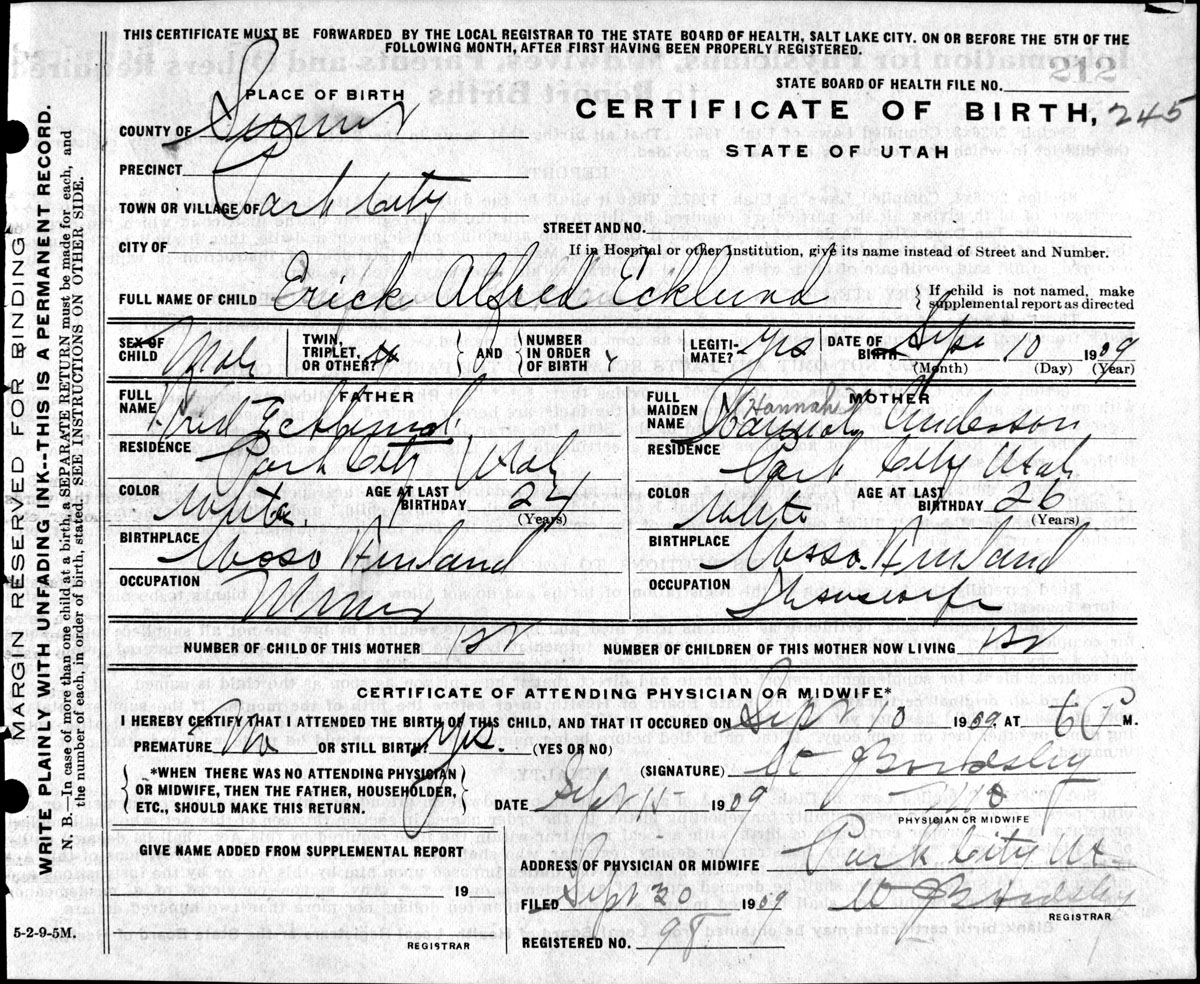 THIS CERTIFICATE MUST BE FORWARDED BY THE LOCAL REGISTRAR TO THE STATE BOARD OF HEALTH, SALT LAKE CITY. ON OR BEFORE THE 5TH OF THE
FOLLOWING MONTH, AFTER FIRST HAVING BEEN PROPERLY REGISTERED.
212
STATE BOARD OF HEALTH FILE NO.
PLACE OF BIRTH
CERTIFICATE OF BIRTH, 245
COUNTY OF Summit
STATE OF UTAH
PRECINCT
TOWN OR VILLAGE OF Park City
STREET AND NO.
CITY OF
If in Hospital or other Institution, give its name instead of Street and Number.
FULL NAME OF CHILD Erick Alfred Ecklund
If child is not named, make
supplemental report as directed
SEX OF CHILD Male
TWIN, TRIPLET, OR OTHER?
AND
NUMBER IN ORDER OF BIRTH
LEGITI-MATE? Yes
DATE OF BIRTH Sept 10 1909
(Month) (Day) (Year)
FATHER
FULL NAME Fred Ecklund
RESIDENCE Park City Utah
COLOR White
AGE AT LAST BIRTHDAY 24
(Years)
BIRTHPLACE Finland
OCCUPATION Miner
MOTHER
FULL MAIDEN NAME Hannah Anderson
RESIDENCE Park City Utah
COLOR White
AGE AT LAST BIRTHDAY 26
(Years)
BIRTHPLACE Finland
OCCUPATION Housewife
NUMBER OF CHILD OF THIS MOTHER 1st
NUMBER OF CHILDREN OF THIS MOTHER NOW LIVING 1st
CERTIFICATE OF ATTENDING PHYSICIAN OR MIDWIFE*
I HEREBY CERTIFY THAT I ATTENDED THE BIRTH OF THIS CHILD, AND THAT IT OCCURED ON Sep 10 1909, AT 6 P M.
PREMATURE No OR STILL BIRTH? Yes. (YES OR NO)
(SIGNATURE)
*WHEN THERE WAS NO ATTENDING PHYSICIAN
OR MIDWIFE, THEN THE FATHER, HOUSEHOLDER,
ETC., SHOULD MAKE THIS RETURN.
DATE Sept 15 1909
PHYSICIAN OR MIDWIFE
GIVE NAME ADDED FROM SUPPLEMENTAL REPORT
ADDRESS OF PHYSICIAN OR MIDWIFE Park City Ut
19
FILED Sept 30 1909
REGISTRAR
REGISTRAR
REGISTERED NO. 98
5-2-9-5M.
MARGIN RESERVED FOR BINDING
WRITE PLAINLY WITH UNFADING INK--THIS IS A PERMANENT RECORD.
N. B.—In case of more than one child at a birth, a SEPARATE RETURN must be made for each, and
the number of each, in order of birth, stated. SEE INSTRUCTIONS ON OTHER SIDE.